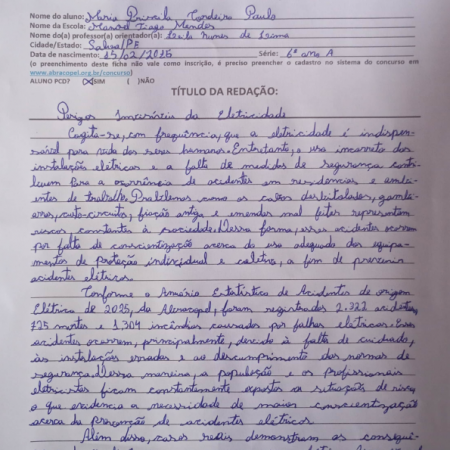 Nome do aluno: Maria Priscila Cordeiro Paulo
Nome da Escola: Manoel Tiago Mendes
Nome do(a) professor(a) orientador(a): Leila Nunes de Lima
Cidade/Estado: Salvá/PE
Data de nascimento: 15/02/2025 Série: 6º ano A
(o preenchimento deste ficha não vale como inscrição, é preciso preencher o cadastro no sistema do concurso em
www.abracopel.org.br/concurso)
ALUNO PCD? (X)SIM ( )NÃO
TÍTULO DA REDAÇÃO:
Perigos Invisíveis da Eletricidade
Cogita-se, com frequência, que a eletricidade é indispen-
sável para vida dos seres humanos. Entretanto, o uso incorreto das
instalações elétricas e a falta de medidas de segurança contri-
buem para a ocorrência de acidentes em residências e ambi-
entes de trabalho. Problemas como os cabos desbitolados, gambi-
arras, curto-circuitos, fiação antiga e emendas mal feitas representam
riscos constantes à sociedade. Dessa forma, esses acidentes ocorrem
por falta de conscientização acerca do uso adequado dos equipa-
mentos de proteção individual e coletiva, a fim de prevenir
acidentes elétricos.
Conforme o Anuário Estatístico de Acidentes de origem
Elétrica de 2025, da Abracopel, foram registrados 2.322 acidentes,
775 mortes e 1.304 incêndios causados por falhas elétricas. Esses
acidentes ocorrem, principalmente, devido à falta de cuidado,
às instalações erradas e ao descumprimento das normas de
segurança. Dessa maneira, a população e os profissionais
eletricistas ficam constantemente expostos a situações de risco,
o que evidencia a necessidade de maior conscientização
acerca da prevenção de acidentes elétricos.
Além disso, casos reais demonstram as consequê-